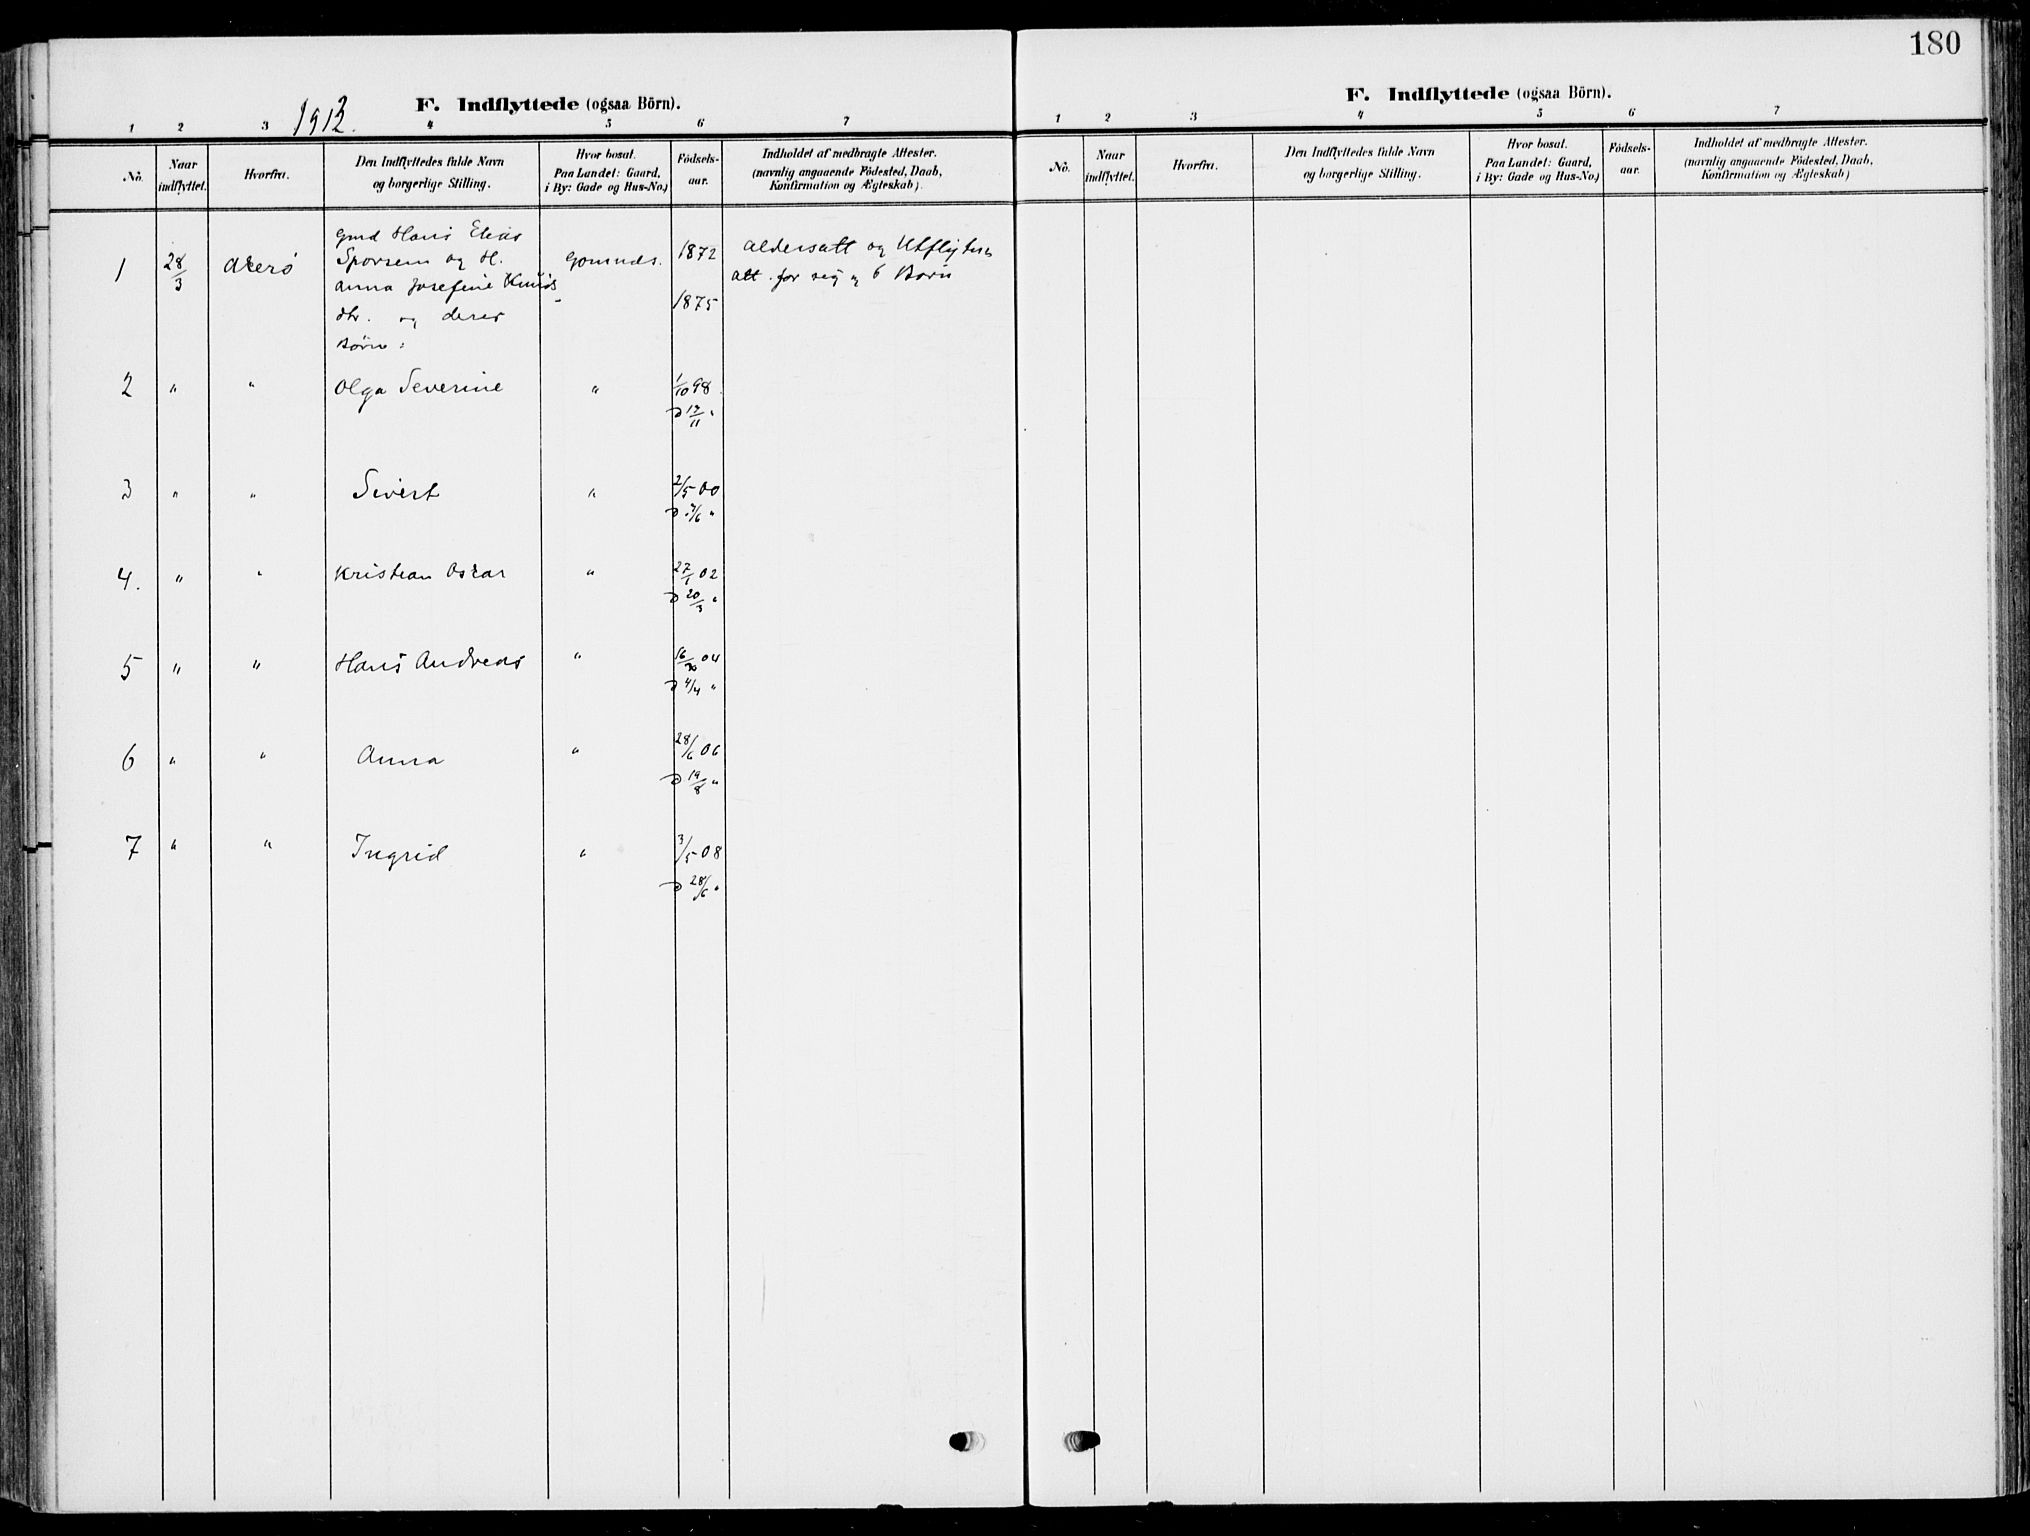 180
F. Indflyttede (ogsaa Börn).
1912.
1 2 3 4 5 6 7
No. Naar indflyttet. Hvorfra. Den Indflyttedes fulde Navn og borgerlige Stilling. Hvor bosat. Paa Landet: Gaard, i By: Gade og Hus-No.) Födsels-aar. Indholdet af medbragte Attester. (navnlig angaaende Födested, Daab, Konfirmation og Ægteskab).
1 28/3 Akerö Gmd Hans Elias 1872 Aldersatt og Utflytn
Sporsem og H. att. for sig og 6 Børn
Anna Josefine Knuds
dtr. og deres 1875
Børn:
2 " " Olga Severine " 1/10 98
D 13/11 "
3 " " Sivert " 2/5 00
D /6 "
4. " " Kristian Oskar " 27/1 02
D 20/3 "
5 " " Hans Andreas " 16/ 04
D 4/4 "
6 " " Anna " 28/6 06
D 19/8 "
7 " " Ingrid " 3/5 08
D 28/6 "
F. Indflyttede (ogsaa Börn).
1 2 3 4 5 6 7
No. Naar indflyttet. Hvorfra. Den Indflyttedes fulde Navn og borgerlige Stilling. Hvor bosat. Paa Landet: Gaard, i By: Gade og Hus-No.) Födsels-aar. Indholdet af medbragte Attester. (navnlig angaaende Födested, Daab, Konfirmation og Ægteskab)